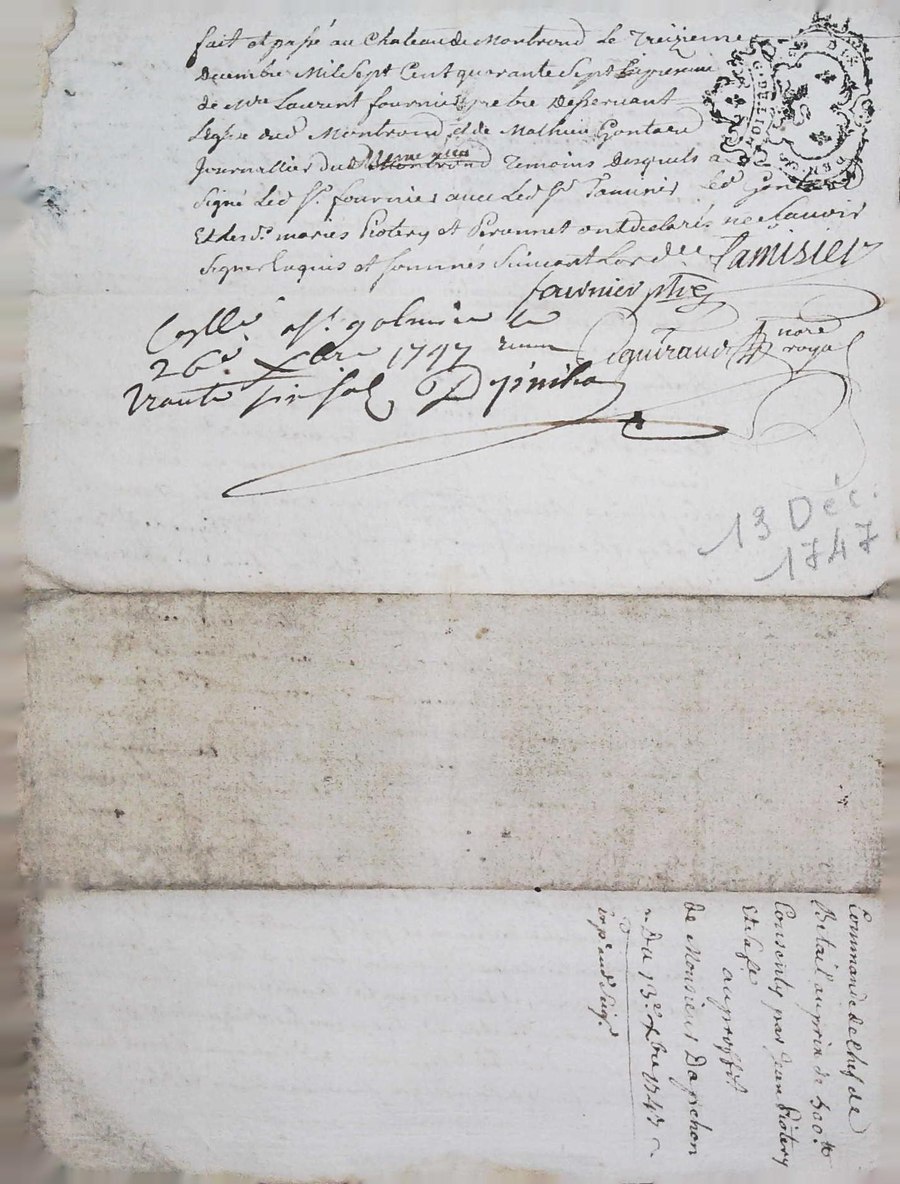 fait et passé au Chateau de Montrond Le Treizieme
Decembre Mil Sept Cent quarante Sept En presence
de Mre Laurent fournier prebre Desservant
L'eglise dud Montrond et de Mathieu Gontard
Journallier dud Mesme lieu Temoins Desquels a
Signé Led Sr. fournier avec Led Sr Tamisier Led Gontard
Et Lesd. maries Piotery et Peronnet ont declaré ne Sçavoir
Signer Enquis et Sommés Suivant Lor
Tamisier
fournier pbre
nore
royal
Conllé a St. galmier le
26e. Xbre 1747
trante six sol
13 Déc.
1747
Commande de Chef de
Betail au prix de 500.tt
Consenty par Jean Piotery
Et Sa fe
au proffit
de Monsieur Dapichon
Du 13e. Xbre 1747